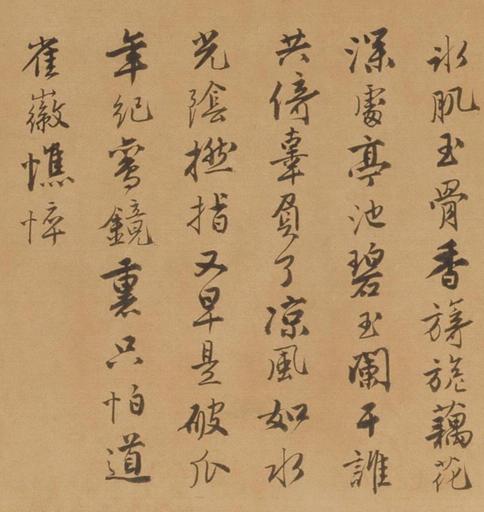 冰肌玉骨香旖旎藕花
深處亭池碧玉闌干誰
共倚辜負了凉風如水
光陰撚指又早是破瓜
年紀鸞鏡裏只怕道
崔徽憔悴